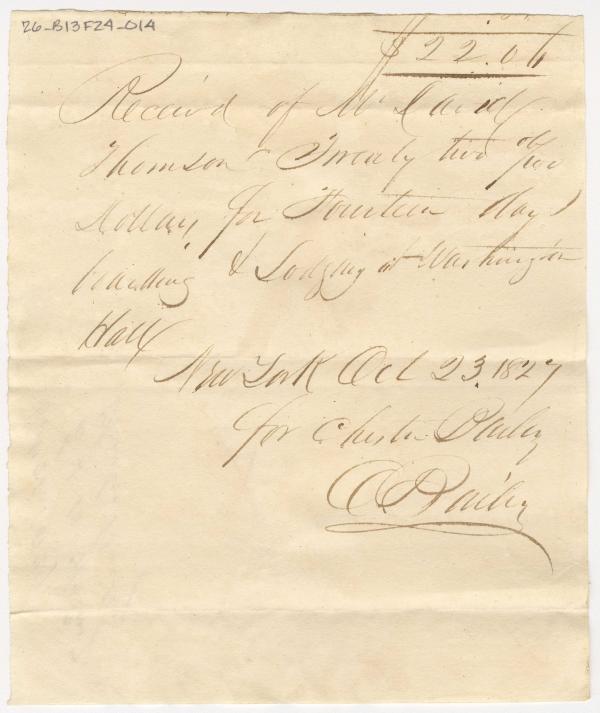 26_B13F24_014
$22.06
Received of Mr David
Thomson Twenty two 06/100
Dollars for Fourteen days
boarding & Lodging at Washington
Hall
New York Oct 23. 1827
for Chester Bailey
C. Bailey